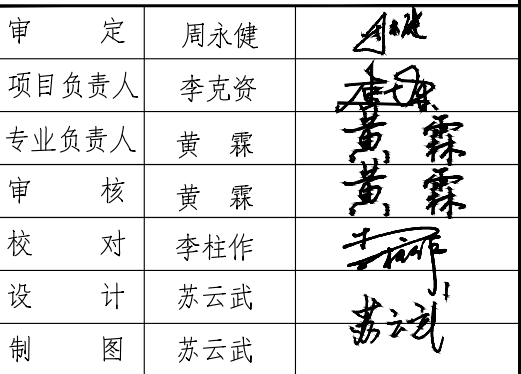 审 定 周永健 周永健
项目负责人 李克资 李克资
专业负责人 黄 霖 黄 霖
审 核 黄 霖 黄 霖
校 对 李柱作 李柱作
设 计 苏云武 苏云武
制 图 苏云武